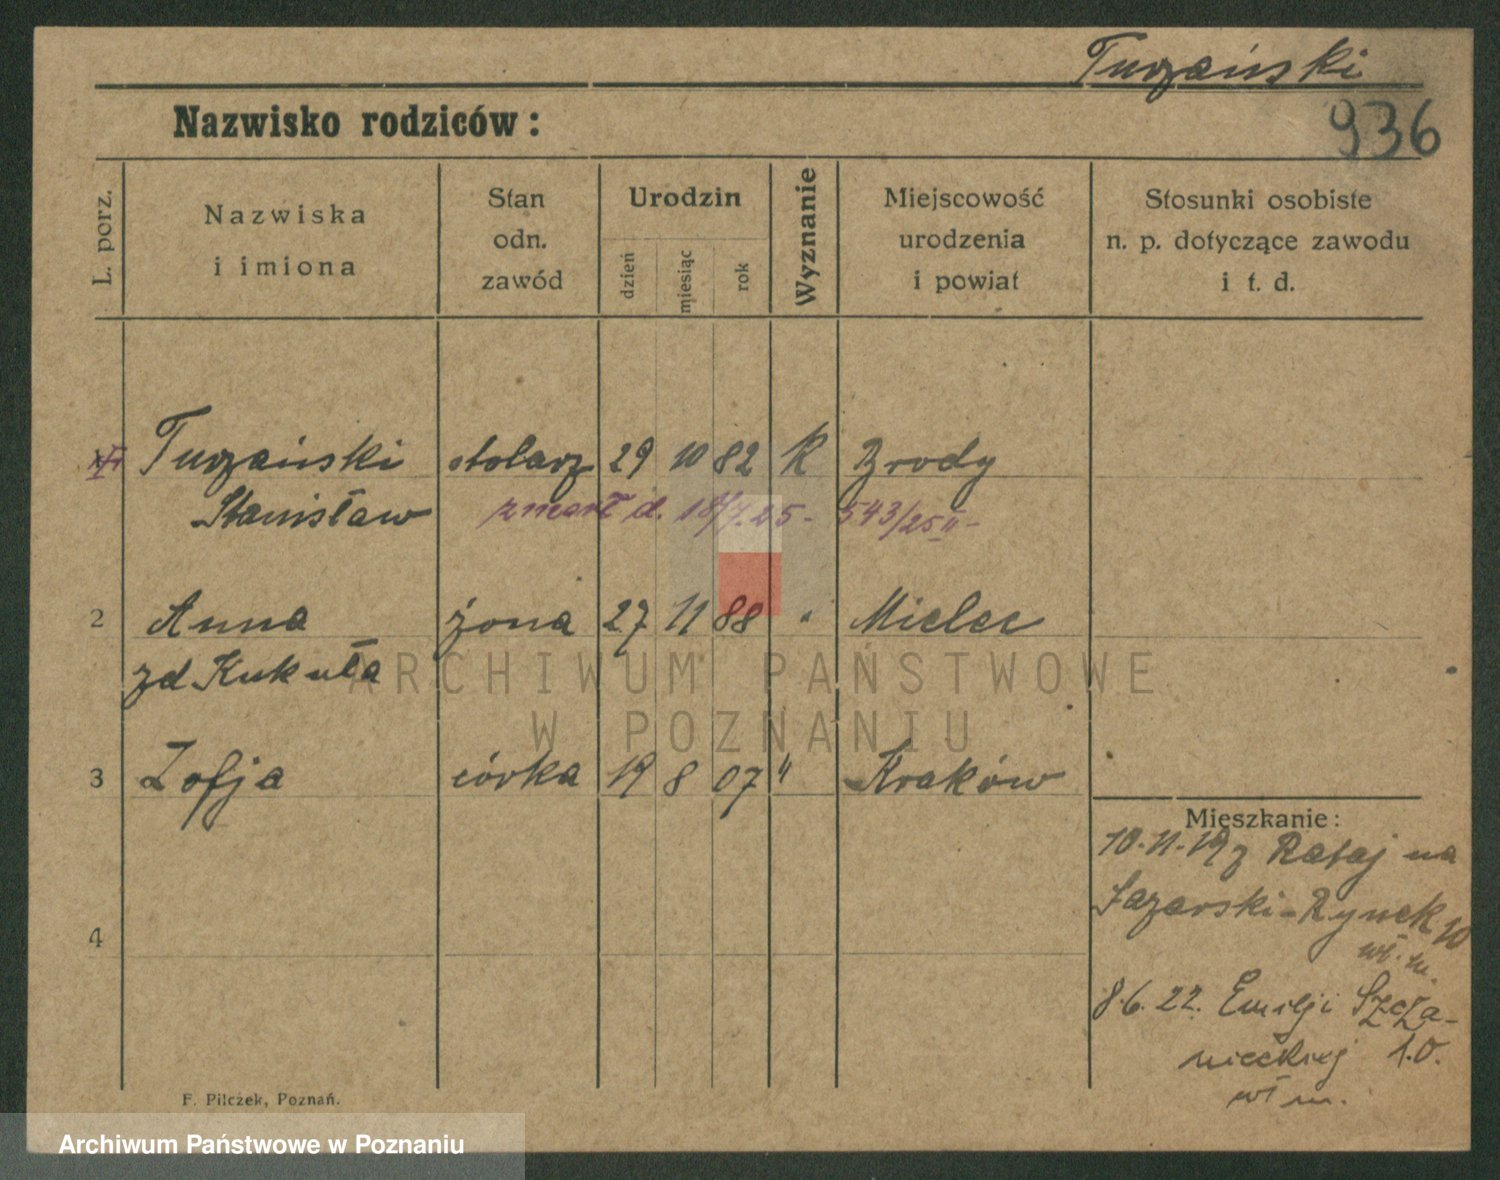 Turzański
936
Nazwisko rodziców:
L. porz.
Nazwiska
i imiona
Stan
odn.
zawód
Urodzin
dzień
miesiąc
rok
Wyznanie
Miejscowość
urodzenia
i powiat
Stosunki osobiste
n. p. dotyczące zawodu
i t. d.
Turzański stolarz 29 10 82 K Brody
Stanisław zmarł d. 18/7.25 - 543/25 II -
2 Anna żona 27 11 88 " Mielec
zd Kukuła
ARCHIWUM PAŃSTWOWE
W POZNANIU
3 Zofja córka 19 8 07 " Kraków
4
Mieszkanie:
10.11.19 z Rataj na
Łazarski-Rynek 10
wł. m.
8.6.22. Emilji Szcza-
nieckiej 10.
wł m.
F. Pilczek, Poznań.
Archiwum Państwowe w Poznaniu